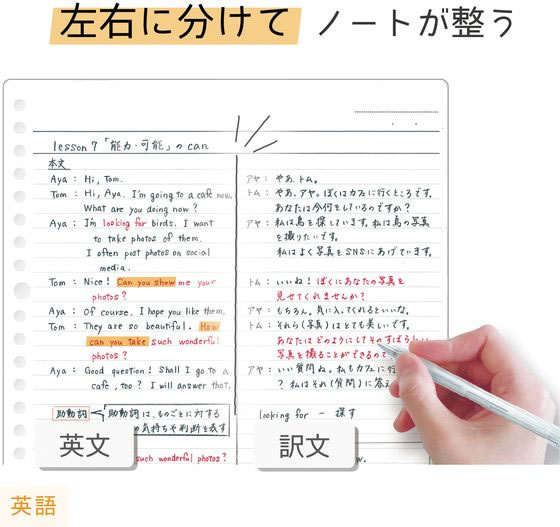 左右に分けて ノートが整う
lesson 7 「能力・可能」の can
本文
Aya : Hi, Tom.
Tom : Hi, Aya. I'm going to a cafe now.
What are you doing now?
Aya : I'm looking for birds. I want
to take photos of them.
I often post photos on social
media.
Tom : Nice! Can you show me your
photos?
Aya : Of course. I hope you like them.
Tom : They are so beautiful. How
can you take such wonderful
photos?
Aya : Good question! Shall I go to a
cafe, too? I will answer that.
助動詞 助動詞は、ものごとに対する
の気持ちや判断を表す
such wonderful photos?
アヤ : やあ、トム。
トム : やあ、アヤ。ぼくはカフェに行くところです。
あなたは今何をしているのですか?
アヤ : 私は鳥を探しています。私は鳥の写真
を撮りたいです。
私はよく写真をSNSにあげています。
トム : いいね! ぼくにあなたの写真を
見せてくれませんか?
アヤ : もちろん。気に入ってくれるといいな。
トム : それら(写真)はとても美しいです。
あなたはどのようにしてそのすばらしい
写真を撮ることができるので
アヤ : いい質問ね。私もカフェに行
? 私はそれ(質問)に答え
looking for - 探す
英文
訳文
英語